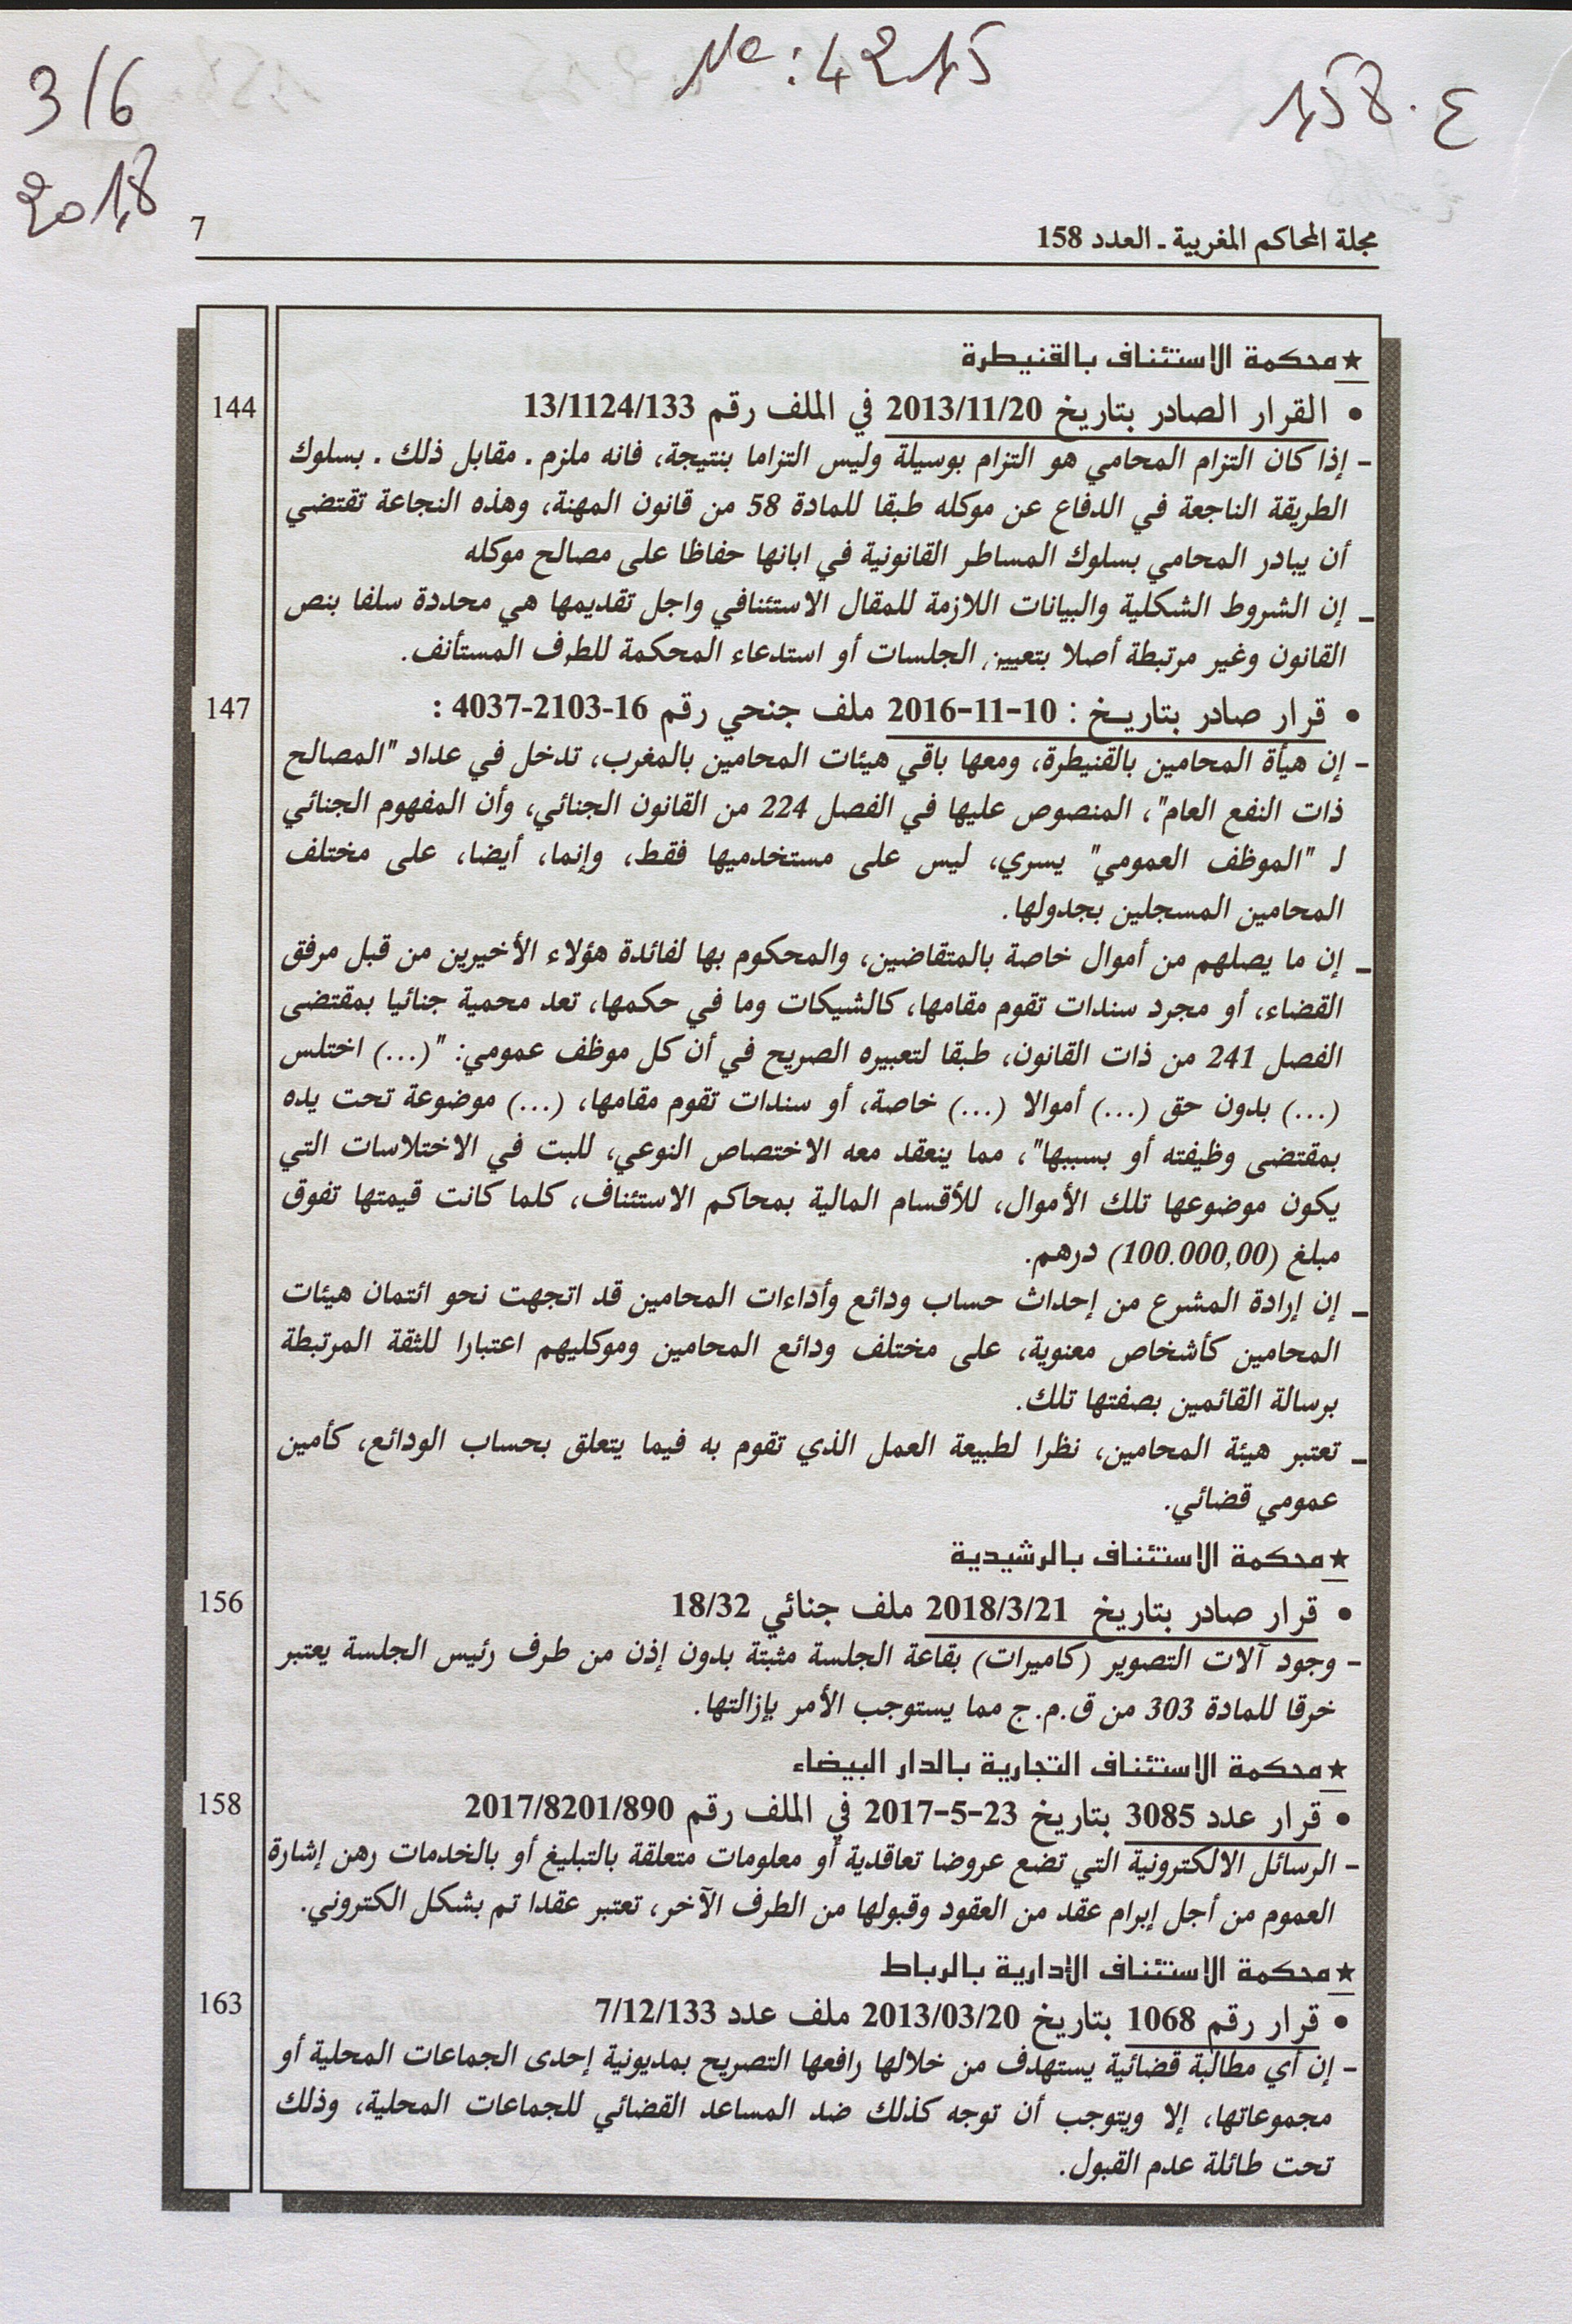 Mc : 4215
158 . ع
3/6
2018
7
مجلة المحاكم المغربية ـ العدد 158
★ محكمة الاستئناف بالقنيطرة
• القرار الصادر بتاريخ 2013/11/20 في الملف رقم 13/1124/133
144
- إذا كان التزام المحامي هو التزام بوسيلة وليس التزاما بنتيجة، فانه ملزم . مقابل ذلك . بسلوك
الطريقة الناجعة في الدفاع عن موكله طبقا للمادة 58 من قانون المهنة، وهذه النجاعة تقتضي
أن يبادر المحامي بسلوك المساطر القانونية في ابانها حفاظا على مصالح موكله
_ إن الشروط الشكلية والبيانات اللازمة للمقال الاستئنافي واجل تقديمها هي محددة سلفا بنص
القانون وغير مرتبطة أصلا بتعيين الجلسات أو استدعاء المحكمة للطرف المستأنف.
• قرار صادر بتاريخ : 10-11-2016 ملف جنحي رقم 16-2103-4037 :
147
- إن هيأة المحامين بالقنيطرة، ومعها باقي هيئات المحامين بالمغرب، تدخل في عداد "المصالح
ذات النفع العام"، المنصوص عليها في الفصل 224 من القانون الجنائي، وأن المفهوم الجنائي
لـ "الموظف العمومي" يسري، ليس على مستخدميها فقط، وإنما، أيضا، على مختلف
المحامين المسجلين بجدولها.
_ إن ما يصلهم من أموال خاصة بالمتقاضين، والمحكوم بها لفائدة هؤلاء الأخيرين من قبل مرفق
القضاء، أو مجرد سندات تقوم مقامها، كالشيكات وما في حكمها، تعد محمية جنائيا بمقتضى
الفصل 241 من ذات القانون، طبقا لتعبيره الصريح في أن كل موظف عمومي: "(...) اختلس
(...) بدون حق (...) أموالا (...) خاصة، أو سندات تقوم مقامها، (...) موضوعة تحت يده
بمقتضى وظيفته أو بسببها"، مما ينعقد معه الاختصاص النوعي، للبت في الاختلاسات التي
يكون موضوعها تلك الأموال، للأقسام المالية بمحاكم الاستئناف، كلما كانت قيمتها تفوق
مبلغ (100.000,00) درهم.
_ إن إرادة المشرع من إحداث حساب ودائع وأداءات المحامين قد اتجهت نحو ائتمان هيئات
المحامين كأشخاص معنوية، على مختلف ودائع المحامين وموكليهم اعتبارا للثقة المرتبطة
برسالة القائمين بصفتها تلك.
_ تعتبر هيئة المحامين، نظرا لطبيعة العمل الذي تقوم به فيما يتعلق بحساب الودائع، كأمين
عمومي قضائي.
★ محكمة الاستئناف بالرشيدية
• قرار صادر بتاريخ 2018/3/21 ملف جنائي 18/32
156
- وجود آلات التصوير (كاميرات) بقاعة الجلسة مثبتة بدون إذن من طرف رئيس الجلسة يعتبر
خرقا للمادة 303 من ق.م.ج مما يستوجب الأمر بإزالتها.
★ محكمة الاستئناف التجارية بالدار البيضاء
• قرار عدد 3085 بتاريخ 23-5-2017 في الملف رقم 2017/8201/890
158
- الرسائل الالكترونية التي تضع عروضا تعاقدية أو معلومات متعلقة بالتبليغ أو بالخدمات رهن إشارة
العموم من أجل إبرام عقد من العقود وقبولها من الطرف الآخر، تعتبر عقدا تم بشكل الكتروني.
★ محكمة الاستئناف الإدارية بالرباط
• قرار رقم 1068 بتاريخ 2013/03/20 ملف عدد 7/12/133
163
- إن أي مطالبة قضائية يستهدف من خلالها رافعها التصريح بمديونية إحدى الجماعات المحلية أو
مجموعاتها، إلا ويتوجب أن توجه كذلك ضد المساعد القضائي للجماعات المحلية، وذلك
تحت طائلة عدم القبول.